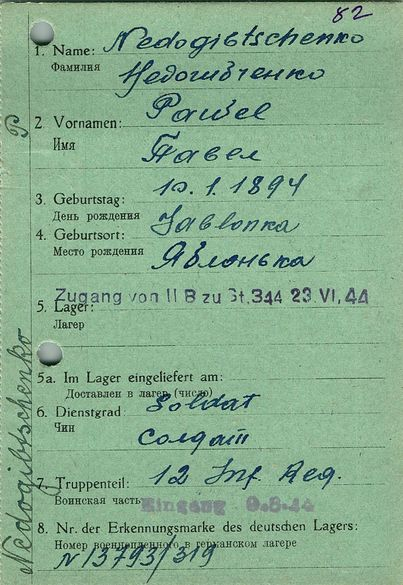 82
1. Name: Nedogibtschenko
Фамилия Недогибченко
2. Vornamen: Pawel
Имя Павел
3. Geburtstag: 10.1.1894
День рождения
4. Geburtsort: Jablonka
Место рождения Яблонька
Zugang von II B zu St. 344 23. VI. 44
5. Lager:
Лагер
5a. Im Lager eingeliefert am:
Доставлен в лагер (число)
6. Dienstgrad: Soldat
Чин солдат
7. Truppenteil: 12 Inf. Reg.
Воинская часть Eingang 9.8.44
8. Nr. der Erkennungsmarke des deutschen Lagers:
Номер военнопленного в германском лагере
N 13793/319
P
Nedogibtschenko